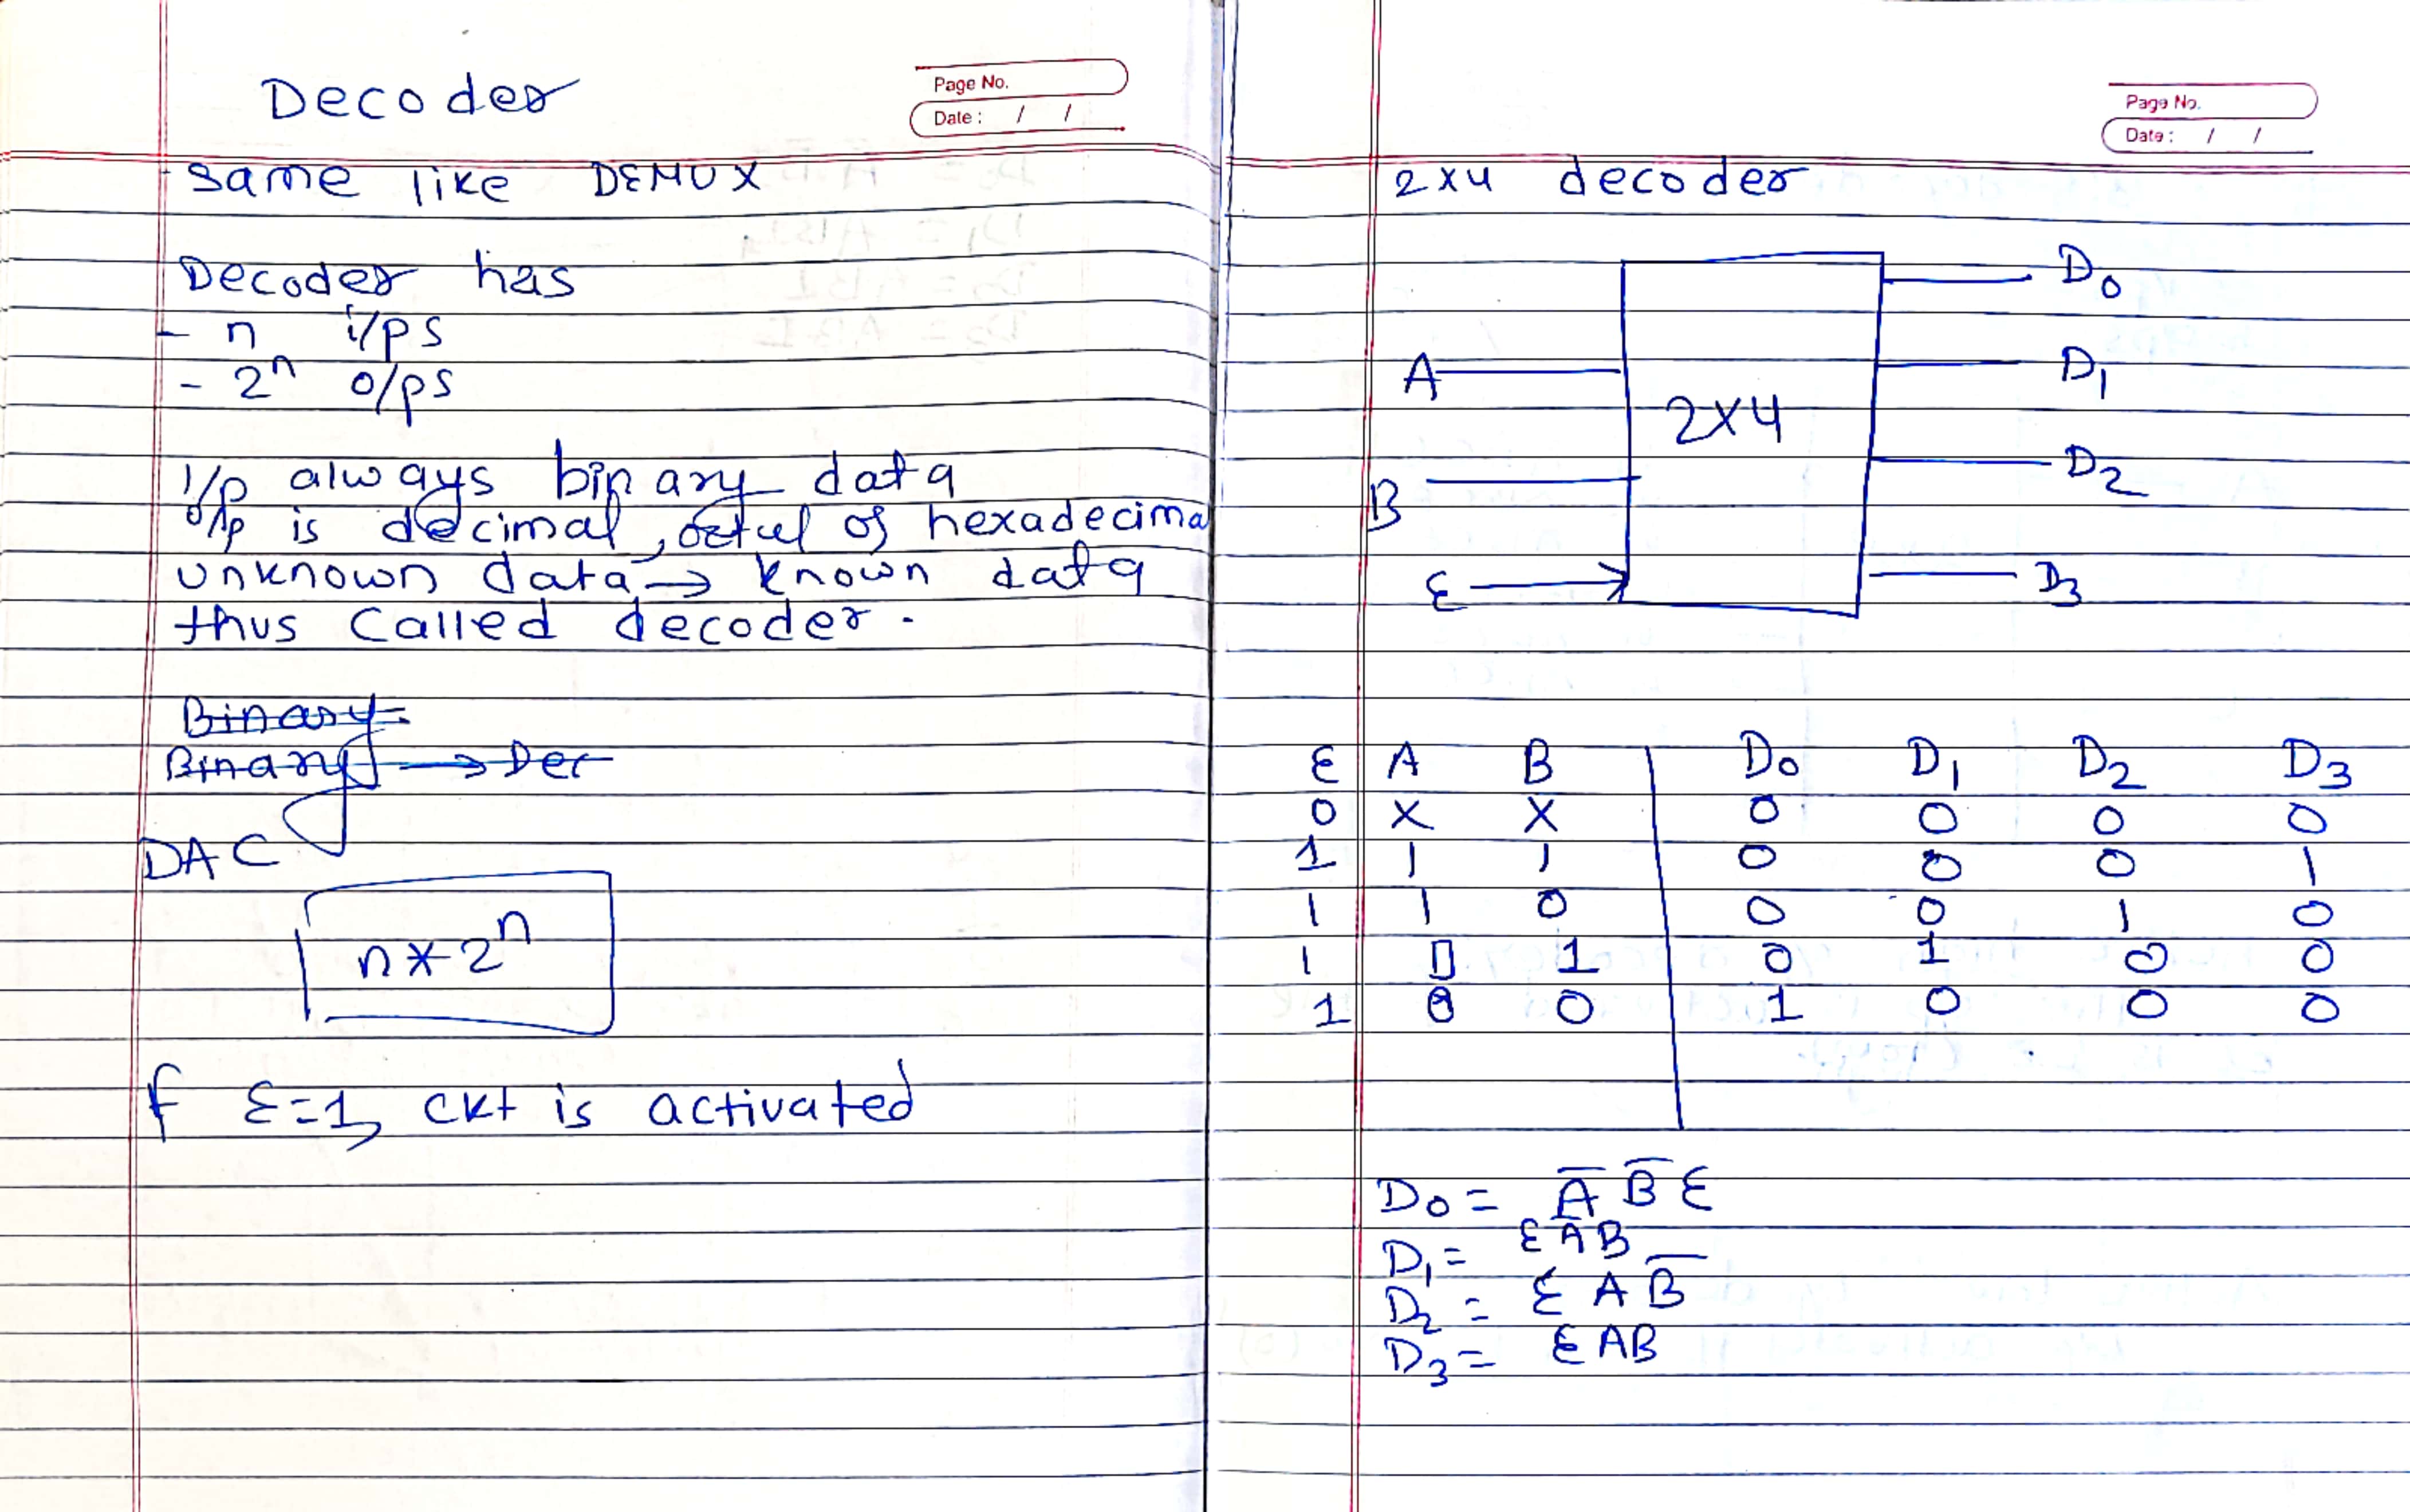 Decoder
Page No.
Date : / /
same like DEMUX
Decoder has
- n i/ps
- 2ⁿ o/ps
i/p always binary data
o/p is decimal, octal or hexadecimal
unknown data → known data
thus called decoder.
Binary
Binary → Dec
DAC
n * 2ⁿ
f ε=1, ckt is activated
Page No.
Date : / /
2x4 decoder
D₀
A D₁
2x4
B D₂
ε D₃
ε A B D₀ D₁ D₂ D₃
0 X X 0 0 0 0
1 1 1 0 0 0 1
1 1 0 0 0 1 0
1 0 1 0 1 0 0
1 0 0 1 0 0 0
D₀ = A̅ B̅ ε
D₁ = ε A̅ B
D₂ = ε A B̅
D₃ = ε AB